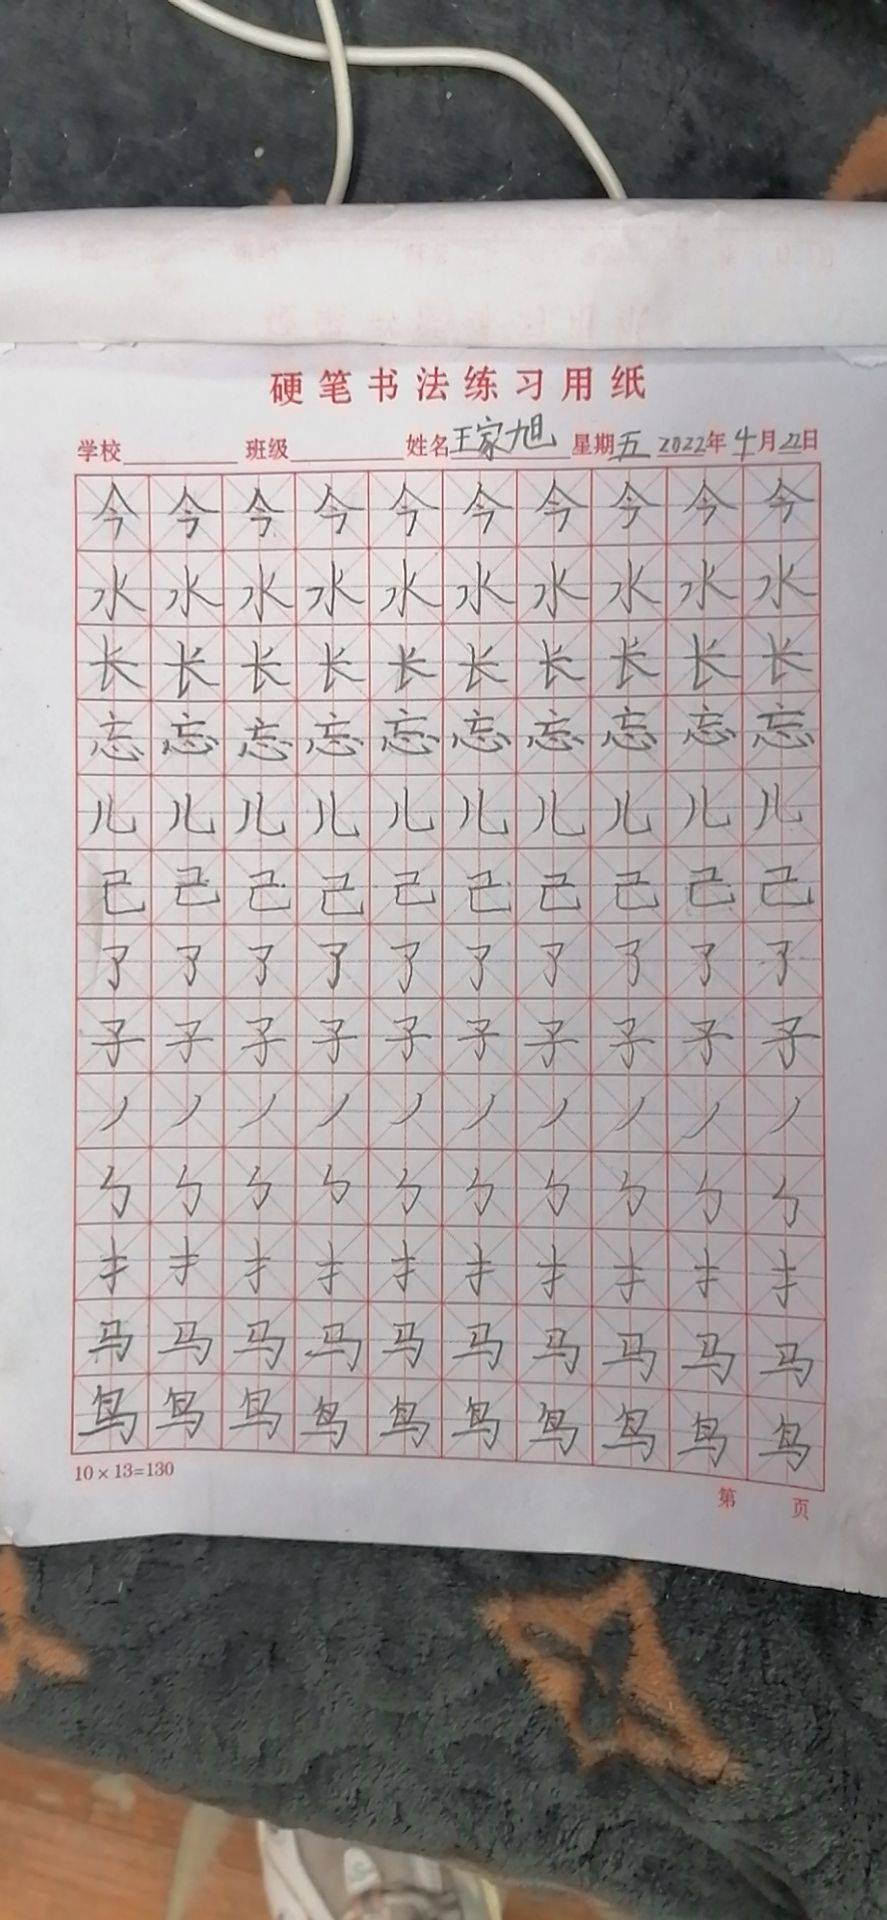 硬笔书法练习用纸
学校 班级 姓名王家旭 星期五 2022年4月22日
今今今今今今今今今今
水水水水水水水水水水
长长长长长长长长长长
忘忘忘忘忘忘忘忘忘忘
儿儿儿儿儿儿儿儿儿儿
己己己己己己己己己己
了了了了了了了了了了
子子子子子子子子子子
丿丿丿丿丿丿丿丿丿丿
㇉㇉㇉㇉㇉㇉㇉㇉㇉㇉
扌扌扌扌扌扌扌扌扌扌
马马马马马马马马马马
鸟鸟鸟鸟鸟鸟鸟鸟鸟鸟
10×13=130
第 页